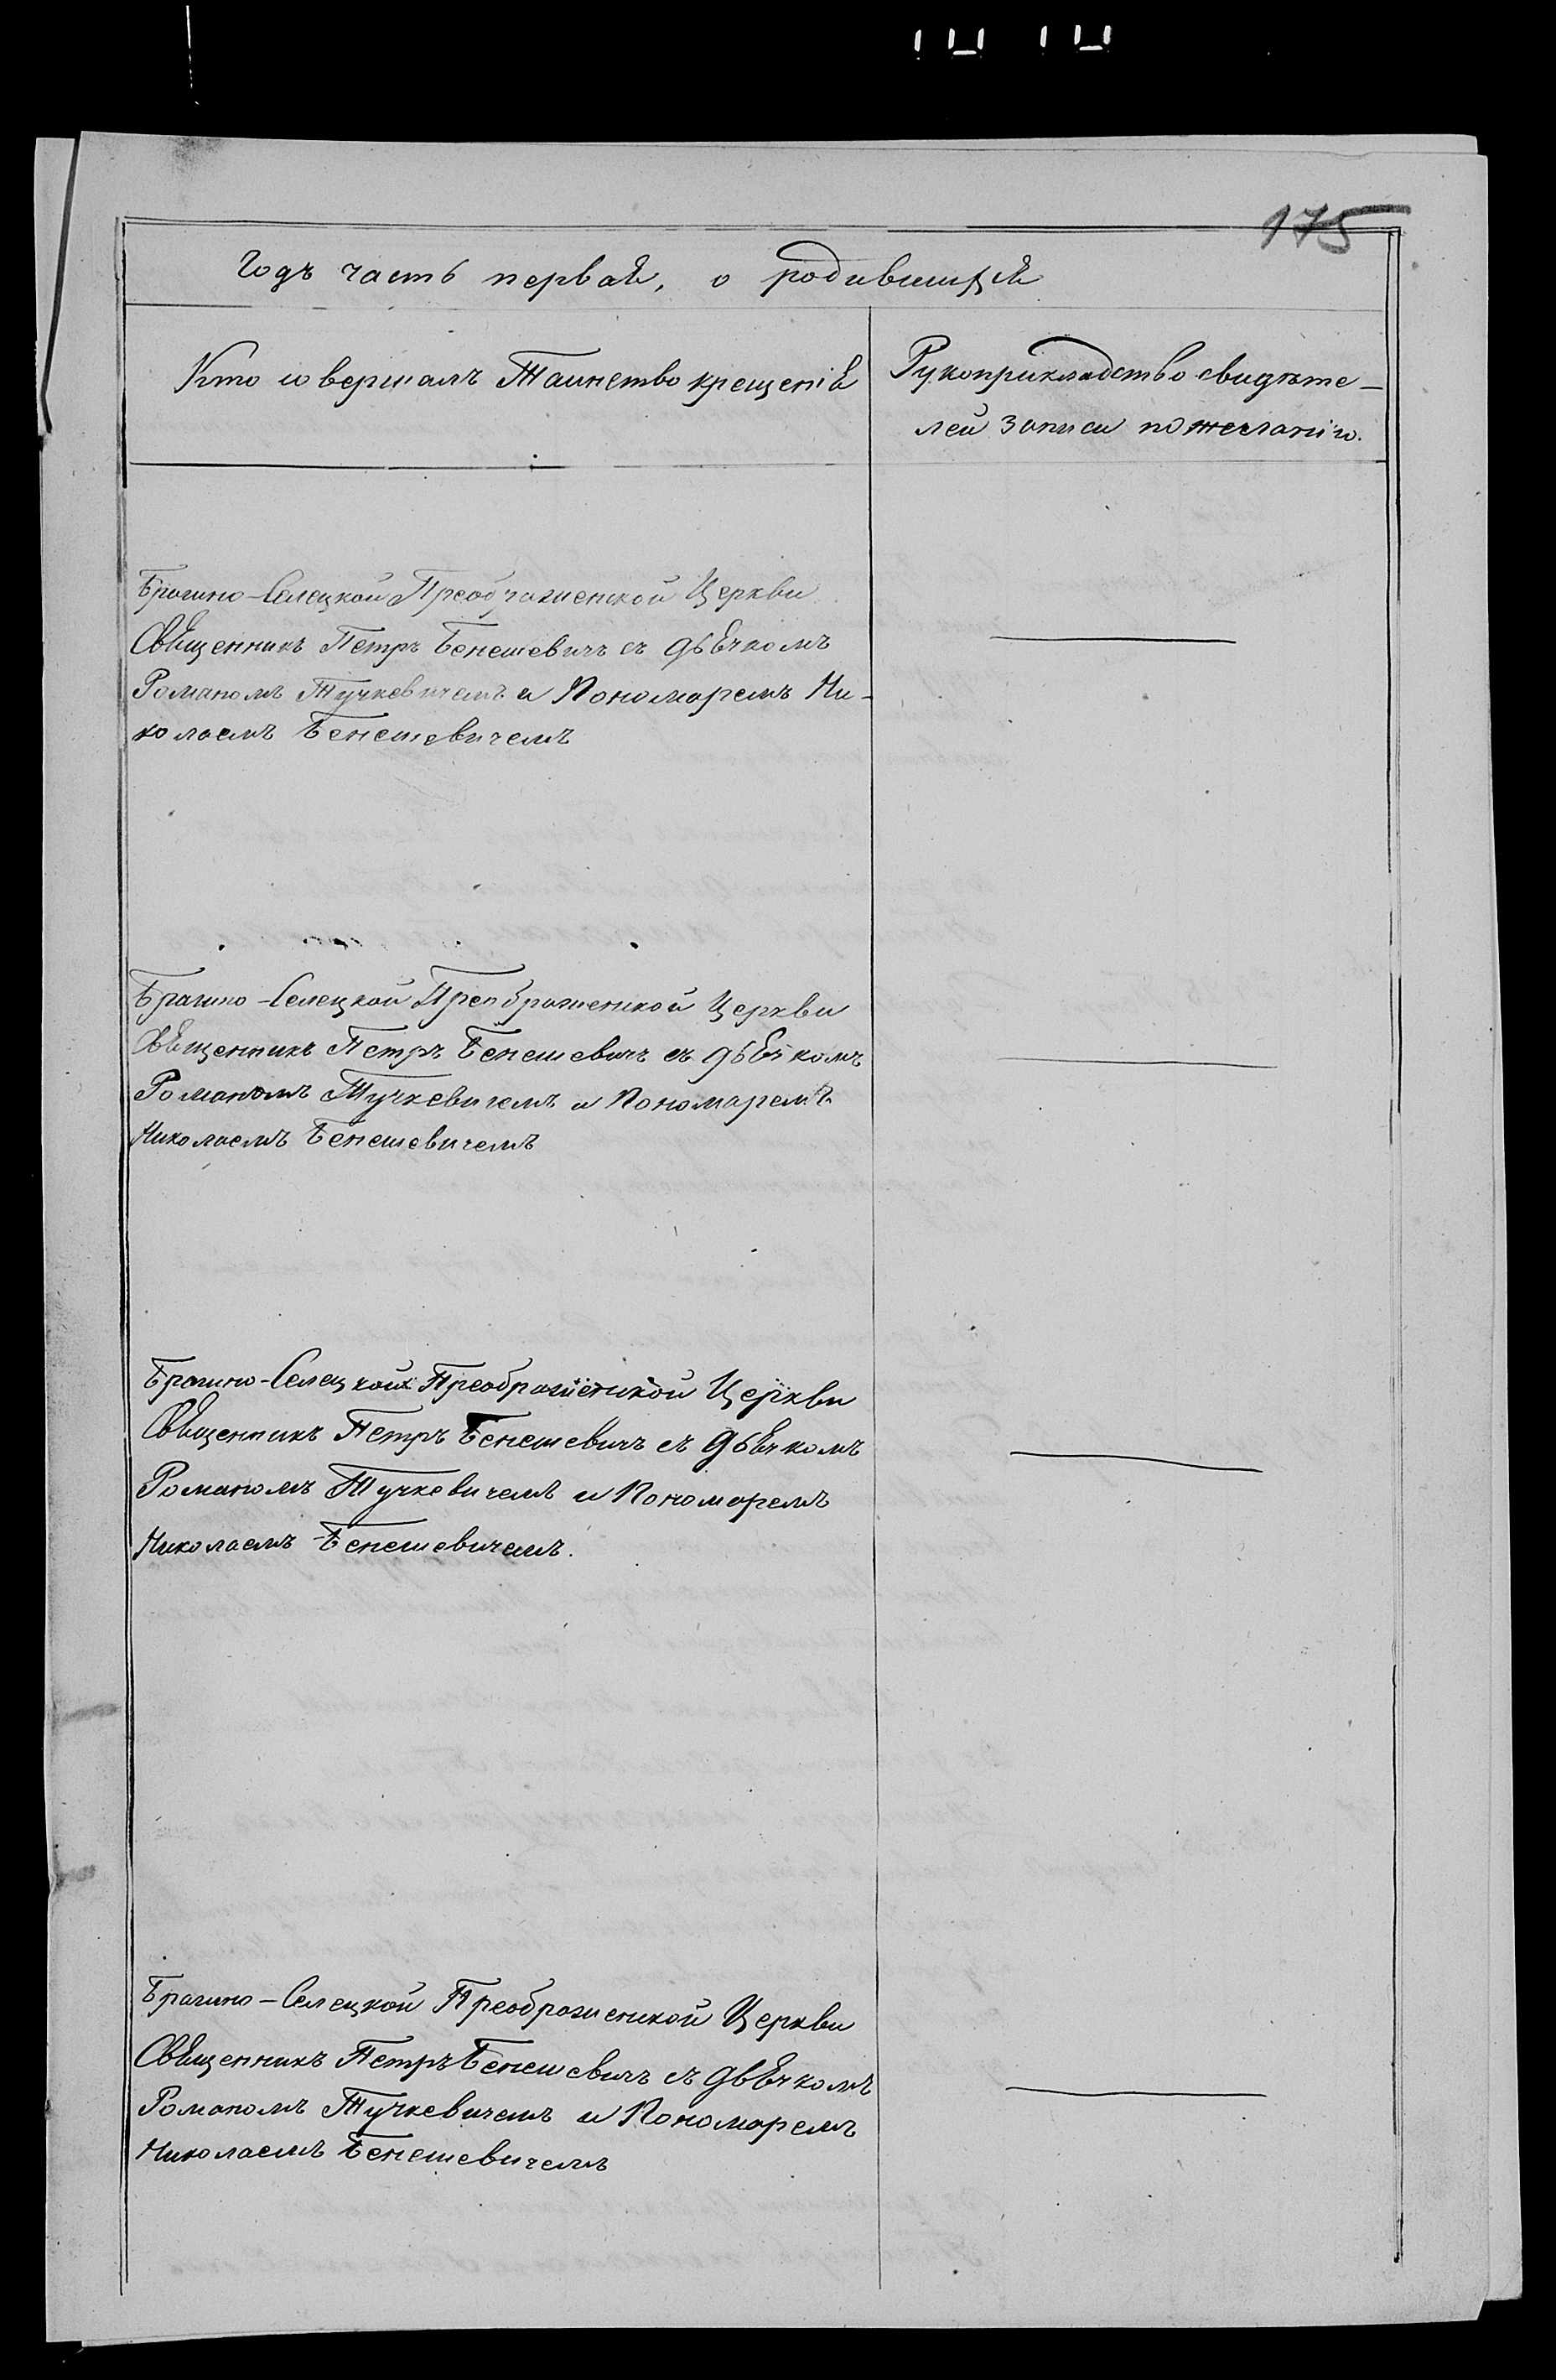 175
Годъ часть первая, о родившихся
Кто совершалъ Таинство крещенія
Рукоприкладство свидѣте-
лей записи по желанію.
Брагино-Селецкой Преображенской Церкви
Священникъ Петръ Бенешевичъ съ дьячкомъ
Романомъ Тучкевичемъ и Пономаремъ Ни-
колаемъ Бенешевичемъ
Брагино-Селецкой Преображенской Церкви
Священникъ Петръ Бенешевичъ съ дьячкомъ
Романомъ Тучкевичемъ и Пономаремъ
Николаемъ Бенешевичемъ
Брагино-Селецкой Преображенской Церкви
Священникъ Петръ Бенешевичъ съ дьячкомъ
Романомъ Тучкевичемъ и Пономаремъ
Николаемъ Бенешевичемъ.
Брагино-Селецкой Преображенской Церкви
Священникъ Петръ Бенешевичъ съ дьячкомъ
Романомъ Тучкевичемъ и Пономаремъ
Николаемъ Бенешевичемъ